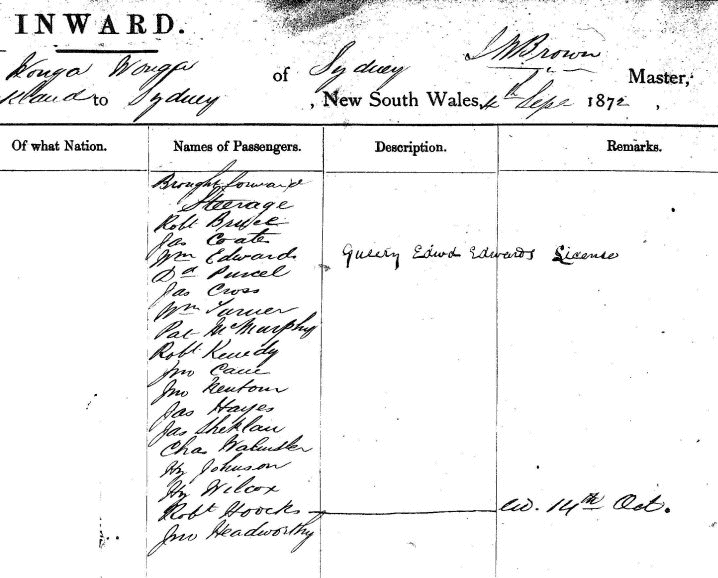 INWARD.
Wonga Wonga of Sydney J W Brown Master,
land to Sydney , New South Wales, 4th Sepr 1872 ,
Of what Nation. Names of Passengers. Description. Remarks.
Brought forward
Steerage
Robt Bruce
Jas Coates
Wm Edwards Query Edwd Edwards License
Dd Purcel
Jas Cross
Wm Turner
Pat McMurphy
Robt Kenedy
Jno Cane
Jno Newtown
Jas Hayes
Jas
Chas
Hy Johnson
Hy Wilcox
Robt Hoocks 14th Oct.
Jno Headworthy